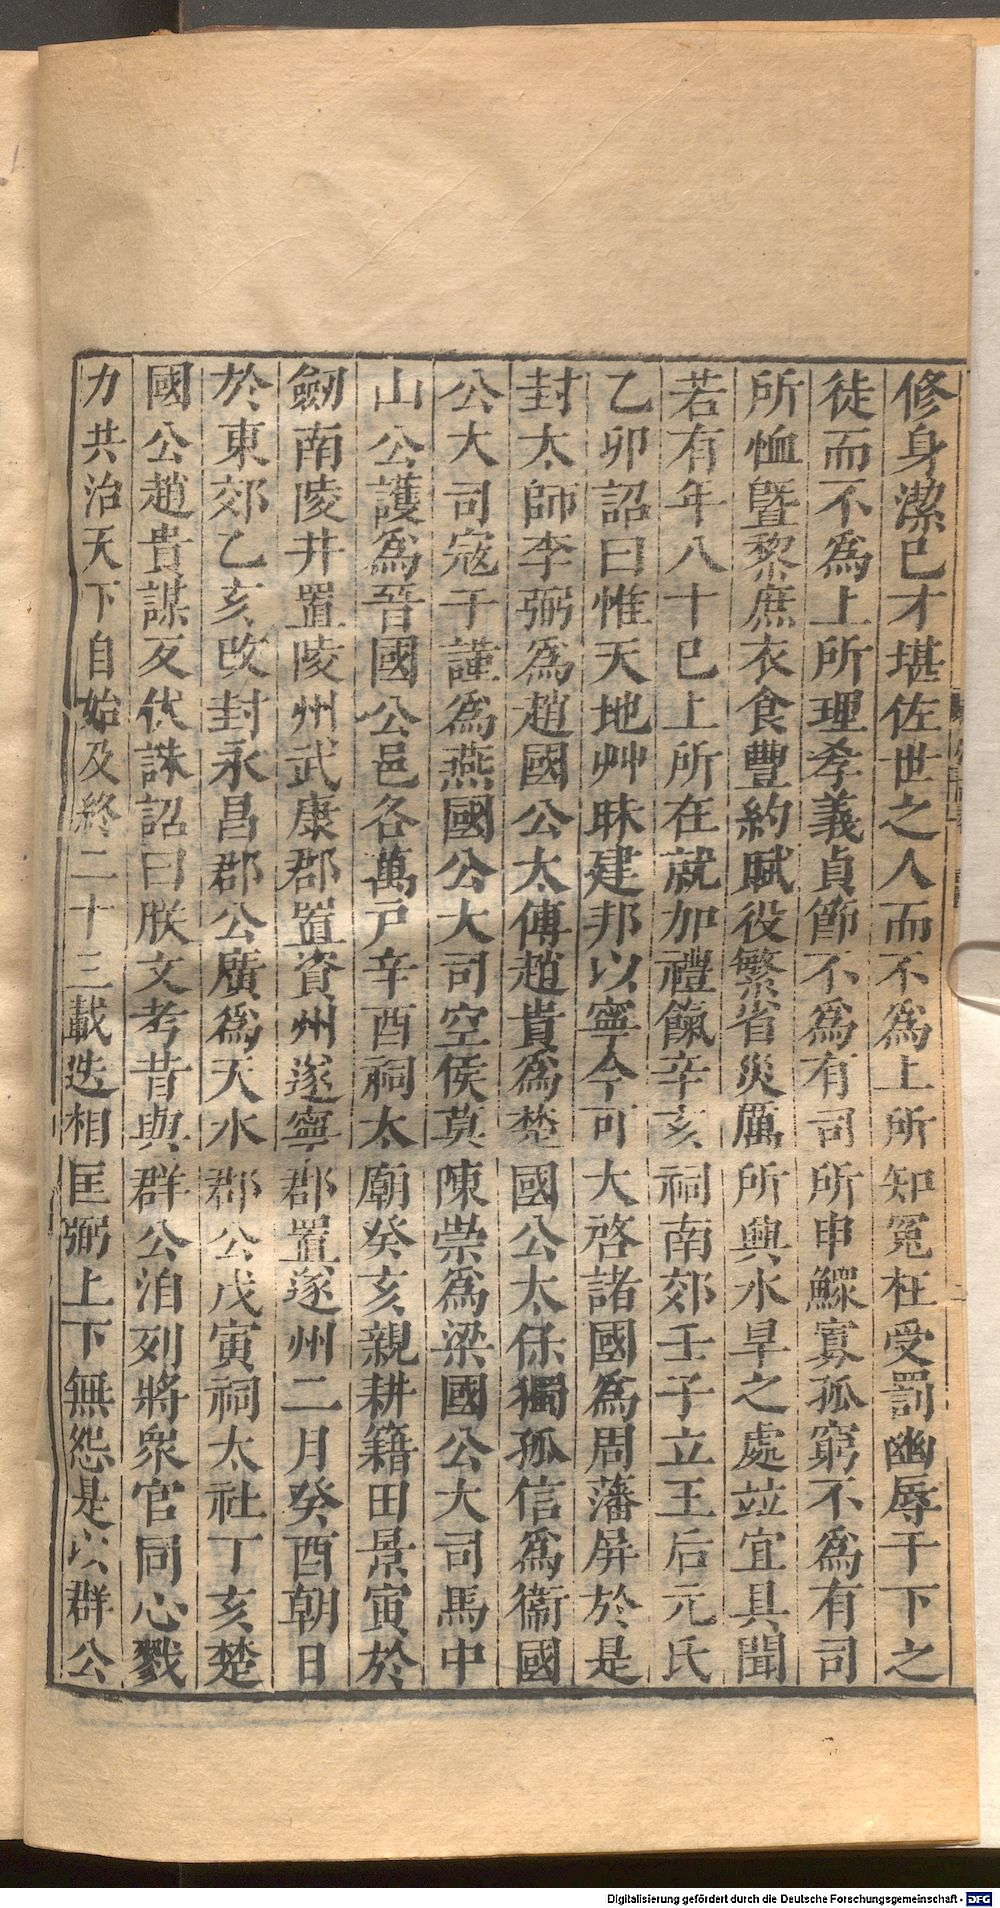 修身潔已才堪佐世之人而不爲上所知冤枉受罰幽辱于下之
徒而不爲上所理孝義貞節不爲有司所申鰥寡孤窮不爲有司
所恤曁黎庶衣食豐約賦役繁省災厲所興水旱之處竝宜具聞
若有年八十巳上所在就加禮餼辛亥祠南郊壬子立王后元氏
乙卯詔曰惟天地艸昧建邦以寧今可大啓諸國爲周藩屏於是
封太師李弼爲趙國公太傅趙貴爲楚國公太保獨孤信爲衞國
公大司寇于謹爲燕國公大司空侯莫陳崇爲梁國公大司馬中
山公護爲晉國公邑各萬戸辛酉祠太廟癸亥親耕籍田景寅於
劒南陵井置陵州武康郡置資州遂寧郡置遂州二月癸酉朝日
於東郊乙亥改封永昌郡公廣爲天水郡公戊寅祠太社丁亥楚
國公趙貴謀反伏誅詔曰朕文考昔與群公洎列將衆官同心戮
力共治天下自始及終二十三載迭相匡弼上下無怨是以群公
Digitalisierung gefördert durch die Deutsche Forschungsgemeinschaft - DFG